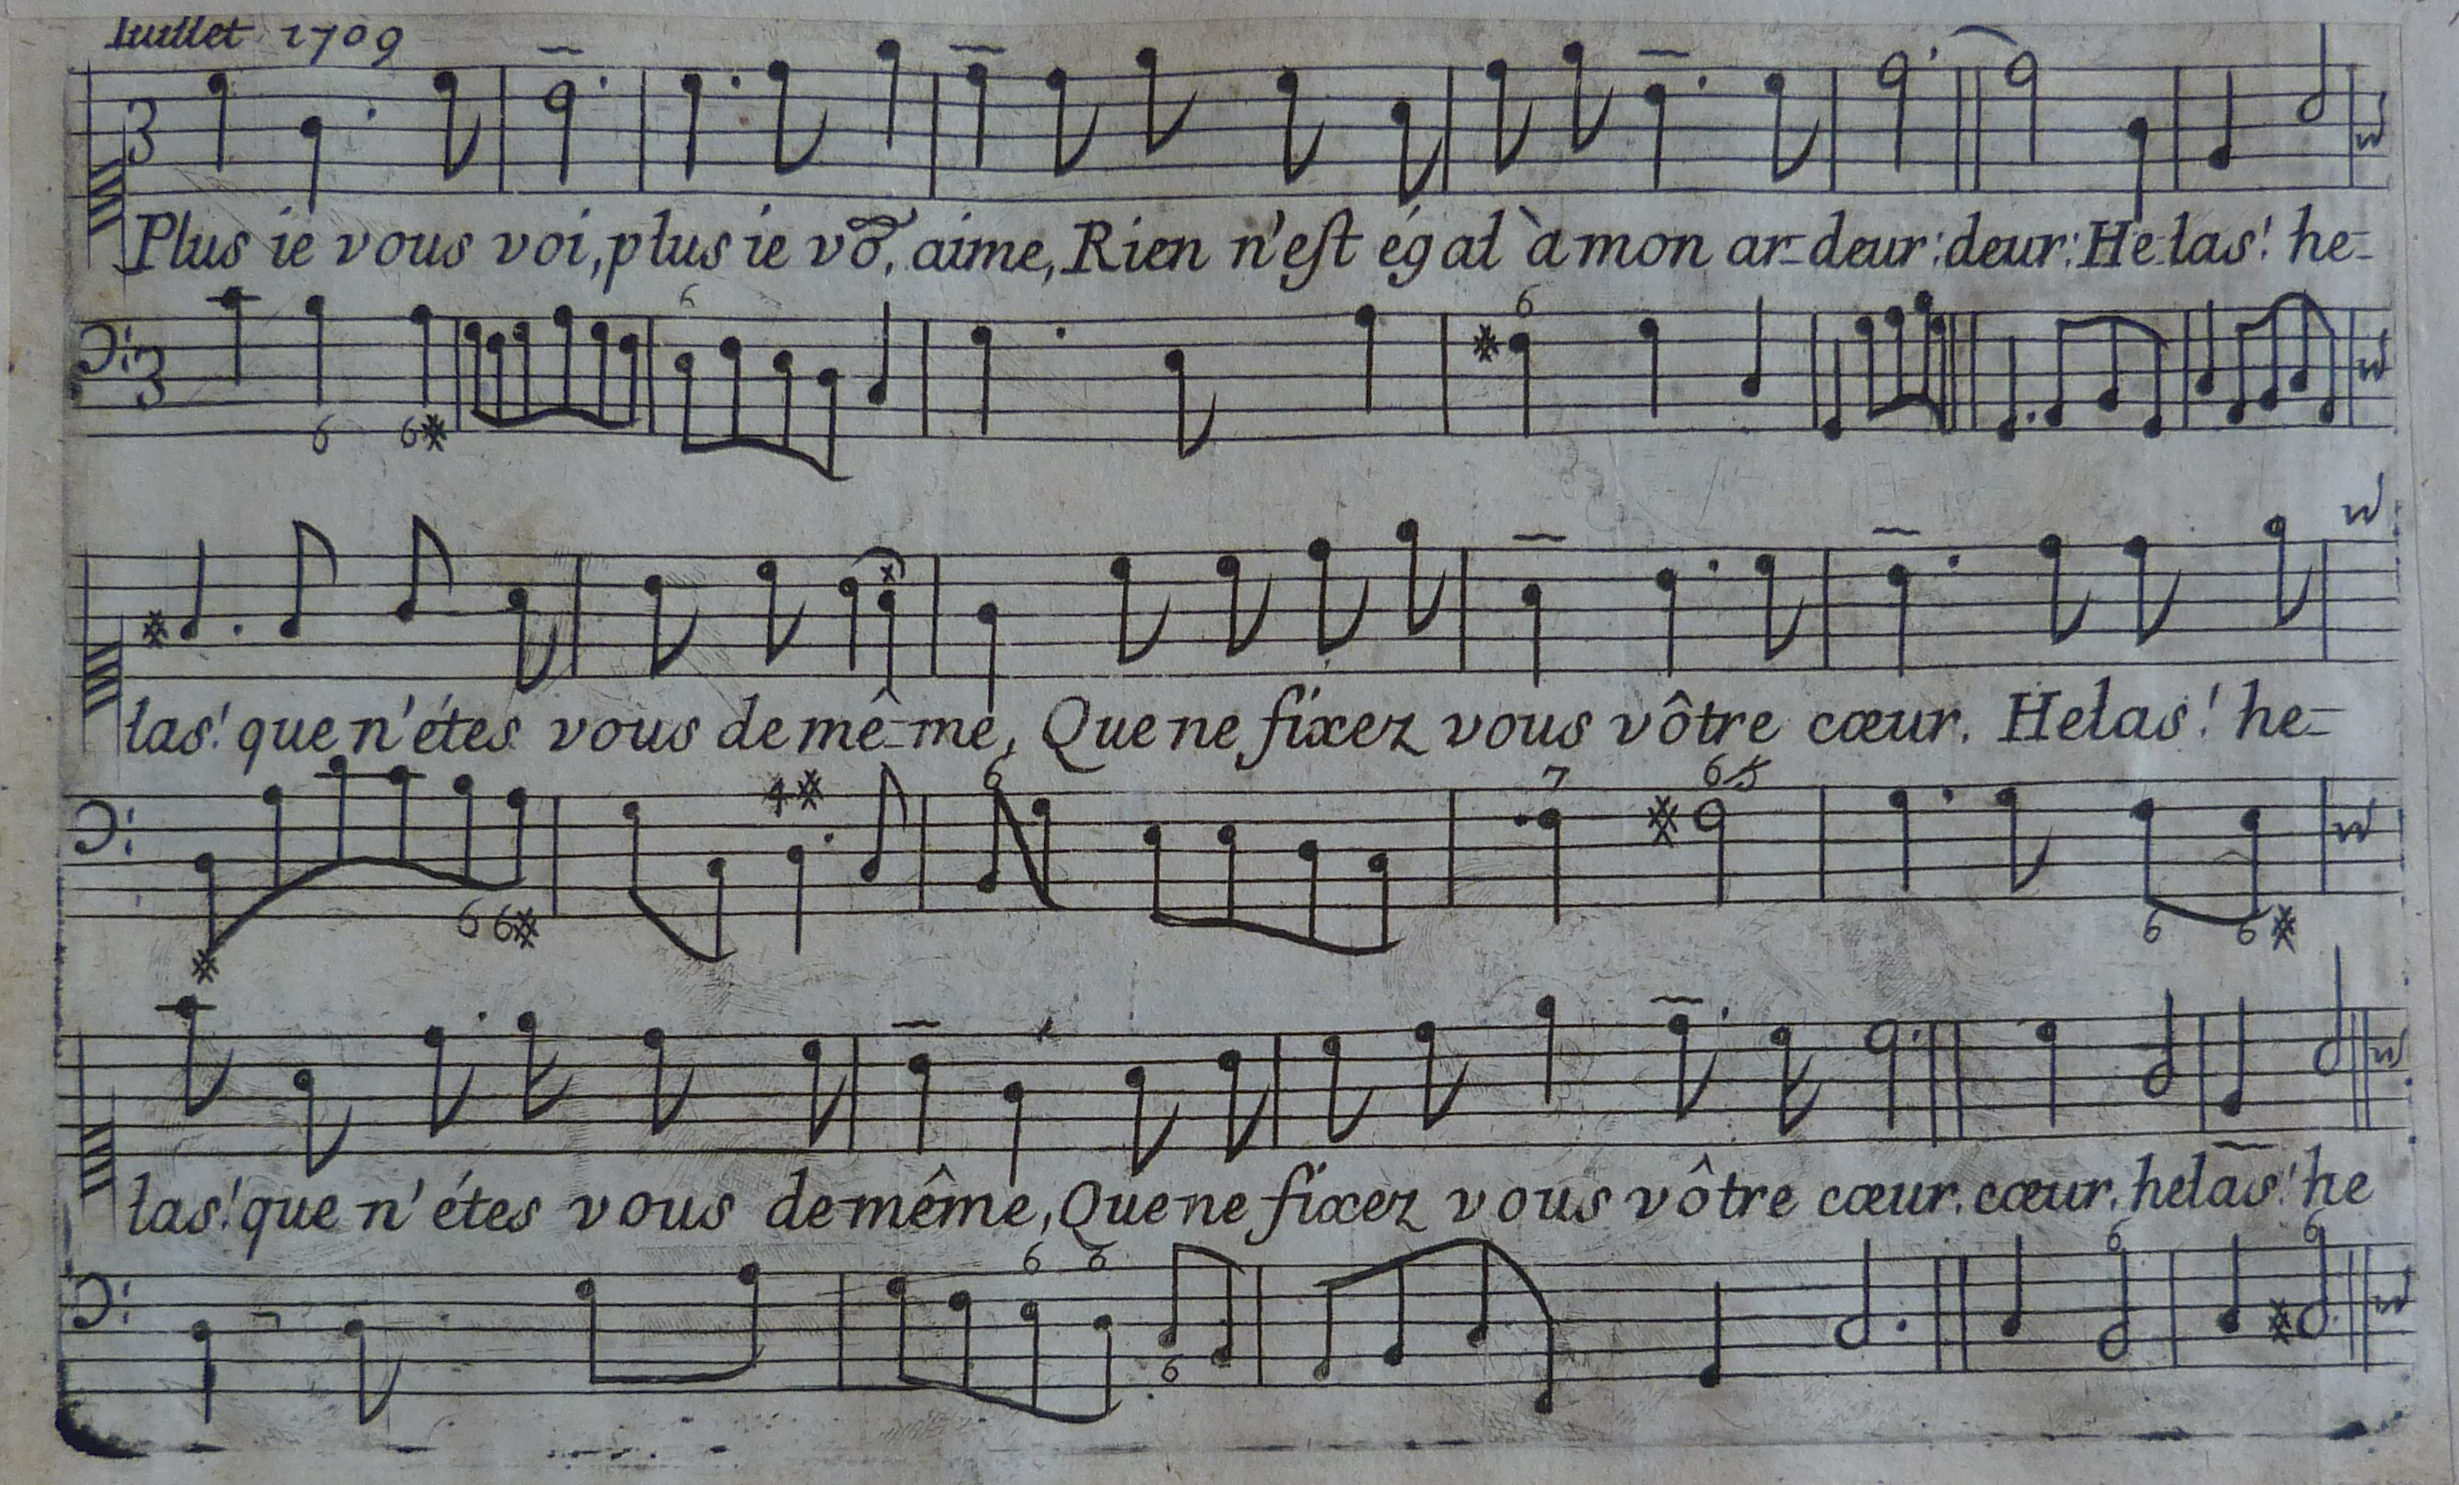 Iuillet 1709
3
Plus ie vous voi, plus ie vo⁹, aime, Rien n'eſt égal à mon ar-deur: deur: Helas! he-
6 6
3
6 6
las! que n'étes vous de mê-me, Que ne fixez vous vôtre cœur. Helas! he-
4 6 7 6 5
6 6 6 6
las! que n'étes vous de même, Que ne fixez vous vôtre cœur. cœur. helas! he
6 6 6 6
6